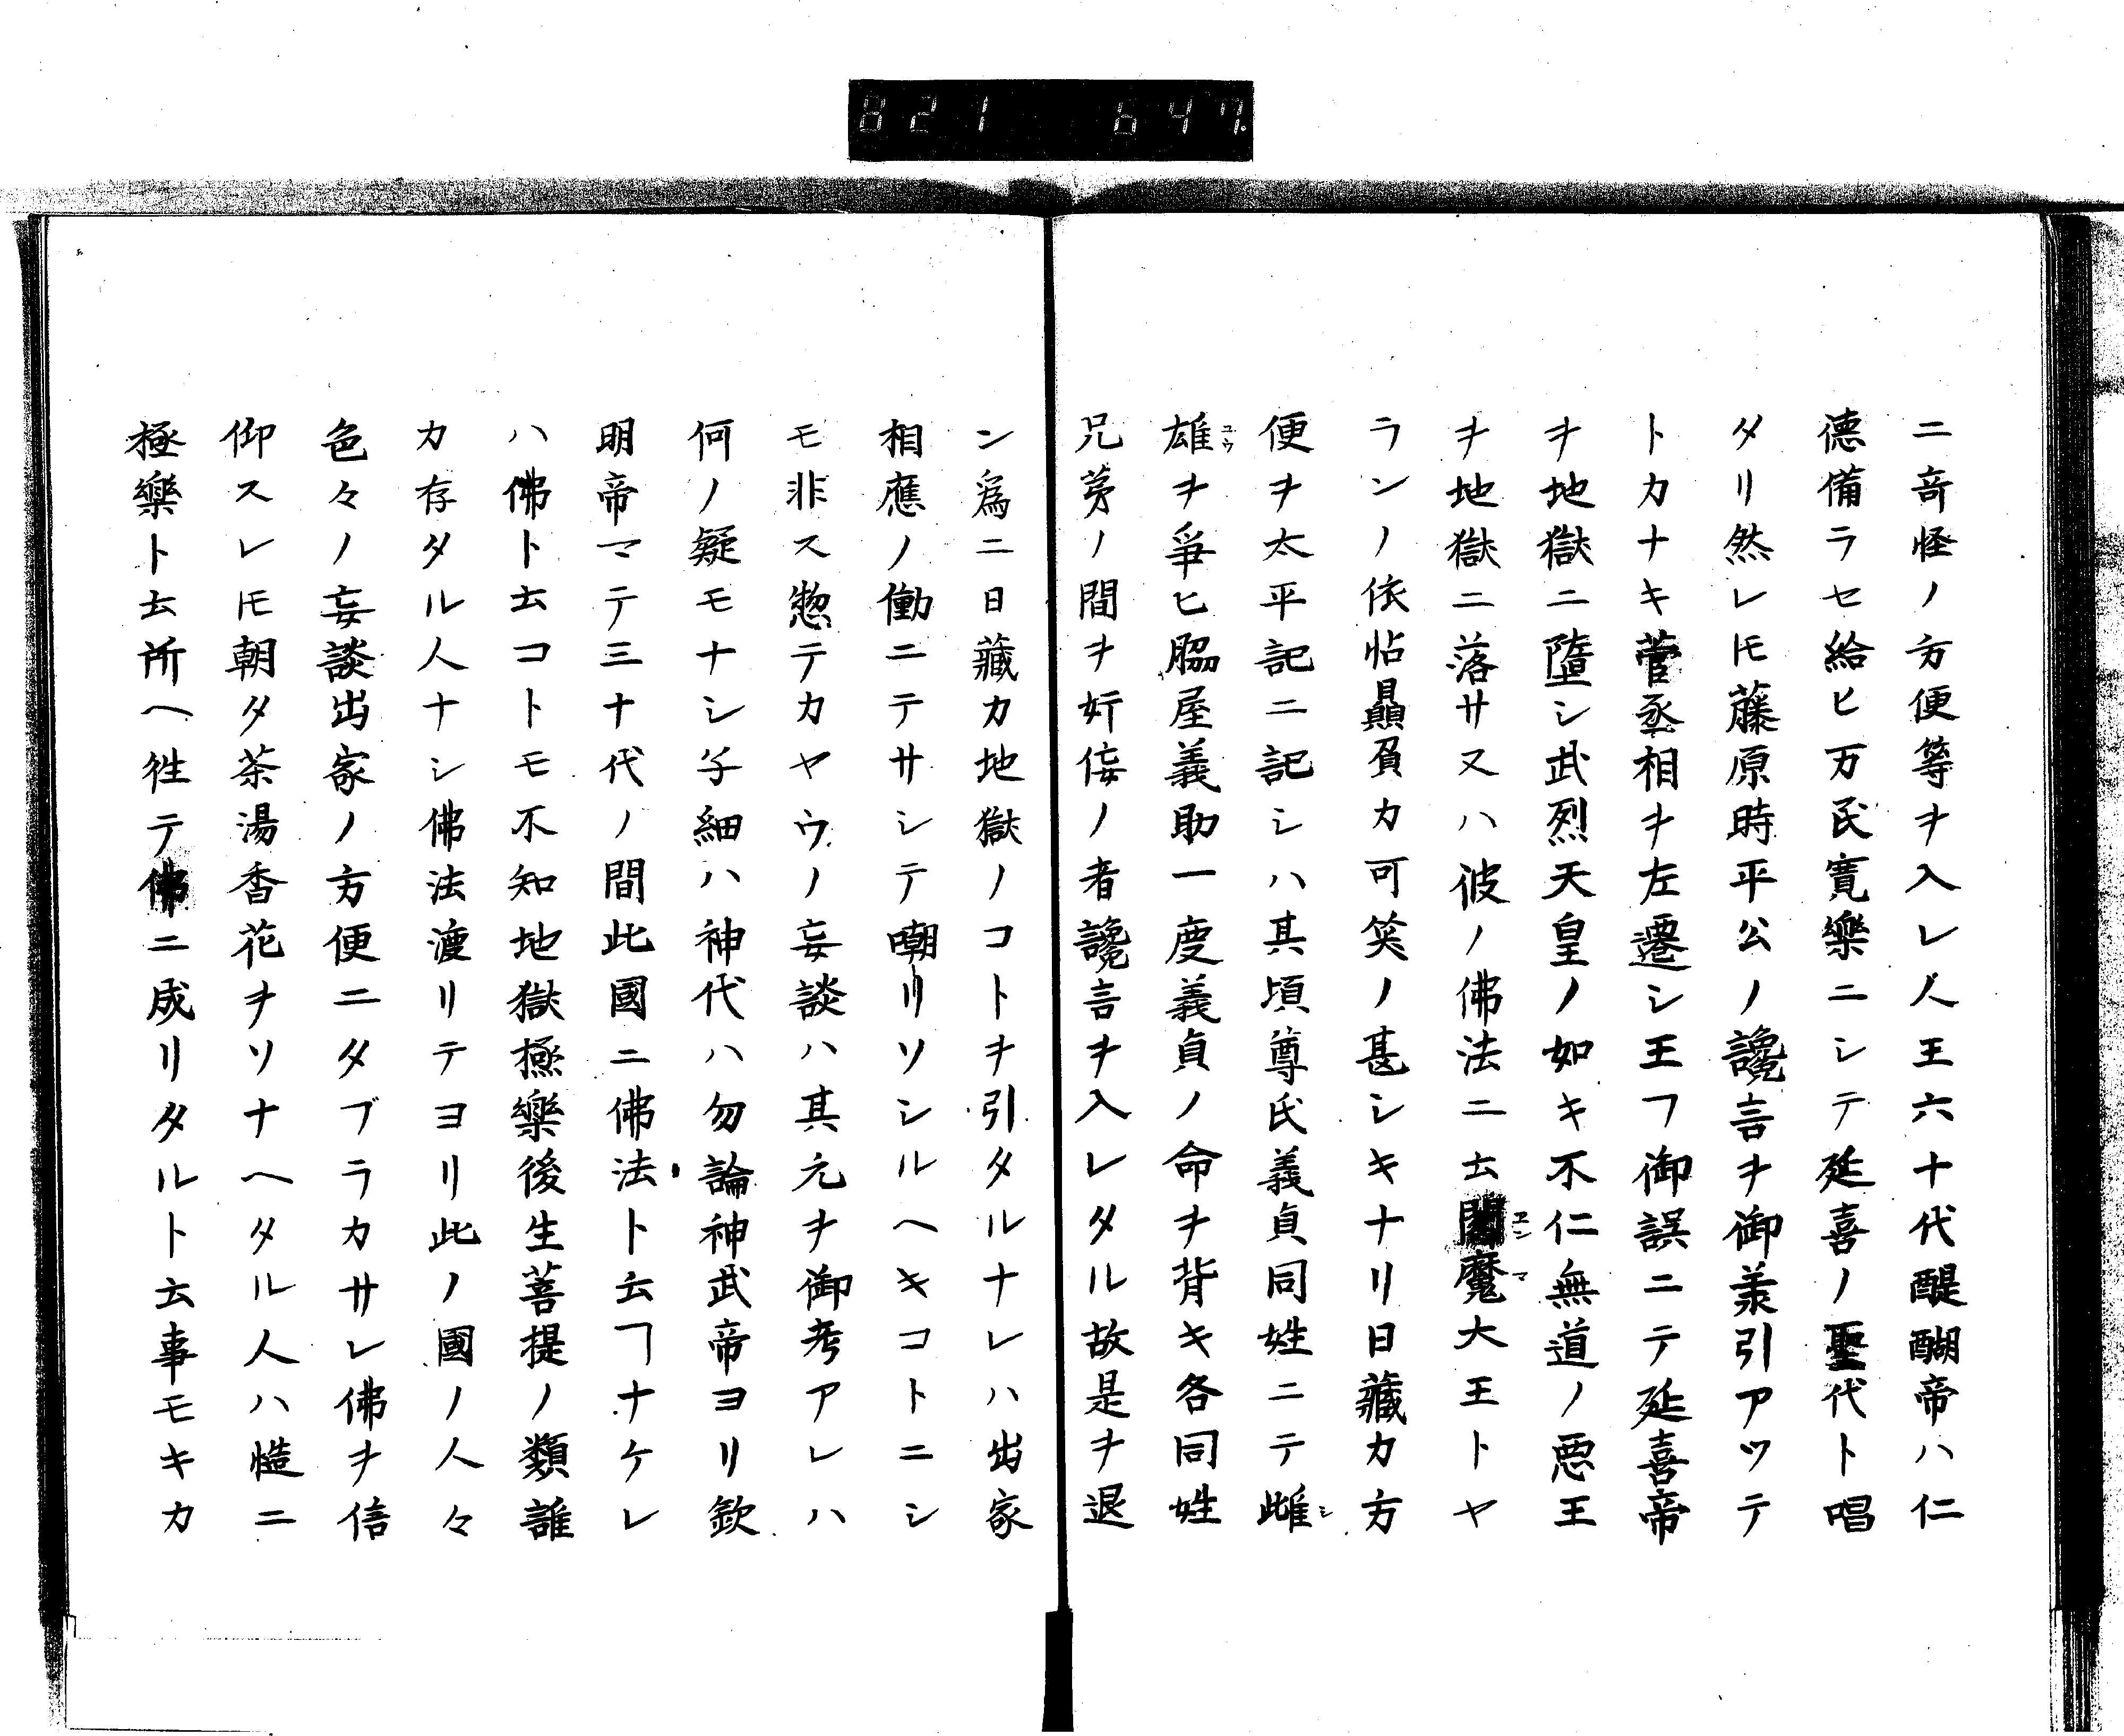 821 647.
ニ奇怪ノ方便等ヲ入レ人王六十代醍醐帝ハ仁
德備ラセ給ヒ万民寛樂ニシテ延喜ノ聖代ト唱
タリ然レ𪜈藤原時平公ノ讒言ヲ御羕引アツテ
トカナキ菅丞相ヲ左遷シ王フ御誤ニテ延喜帝
ヲ地獄ニ墮シ武烈天皇ノ如キ不仁無道ノ悪王
ヲ地獄ニ落サヌハ彼ノ佛法ニ云閻魔大王トヤ
エンマ
ランノ依怙贔屓カ可笑ノ甚シキナリ日藏カ方
便ヲ太平記ニ記シハ其頃尊氏義貞同姓ニテ雌
シ
雄ヲ爭ヒ脇屋義助一度義貞ノ命ヲ背キ各同姓
ユウ
兄弟ノ間ヲ奸侫ノ者讒言ヲ入レタル故是ヲ退
ン爲ニ日藏カ地獄ノコトヲ引タルナレハ出家
相應ノ働ニテサシテ嘲リソシルヘキコトニシ
モ非ス惣テカヤウノ妄談ハ其元ヲ御考アレハ
何ノ疑モナシ子細ハ神代ハ勿論神武帝ヨリ欽
明帝マテ三十代ノ間此國ニ佛法ト云ヿナケレ
ハ佛ト云コトモ不知地獄極樂後生菩提ノ類誰
カ存タル人ナシ佛法渡リテヨリ此ノ國ノ人々
色々ノ妄談出家ノ方便ニタブラカサレ佛ヲ信
仰スレ𪜈朝夕茶湯香花ヲソナヘタル人ハ慥ニ
極樂ト云所ヘ徃テ佛ニ成リタルト云事モキカ